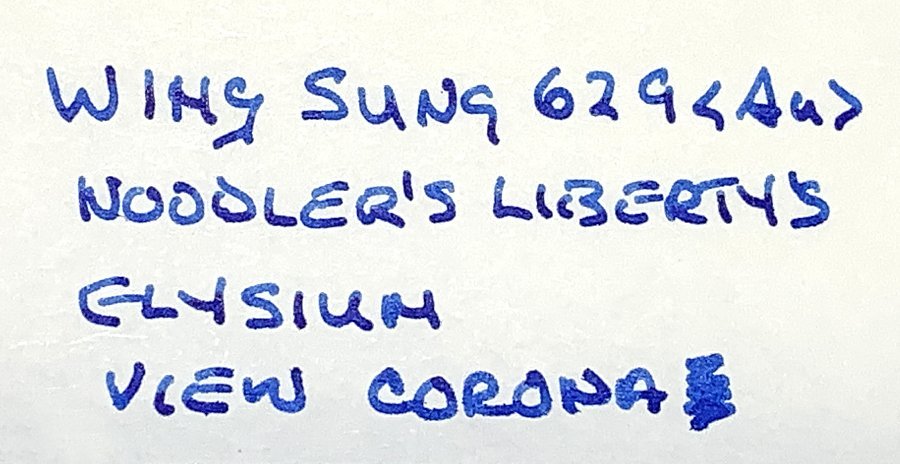 WING SUNG 629 <Au>
NOODLER'S LIBERTY'S
ELYSIUM
VIEW CORONA